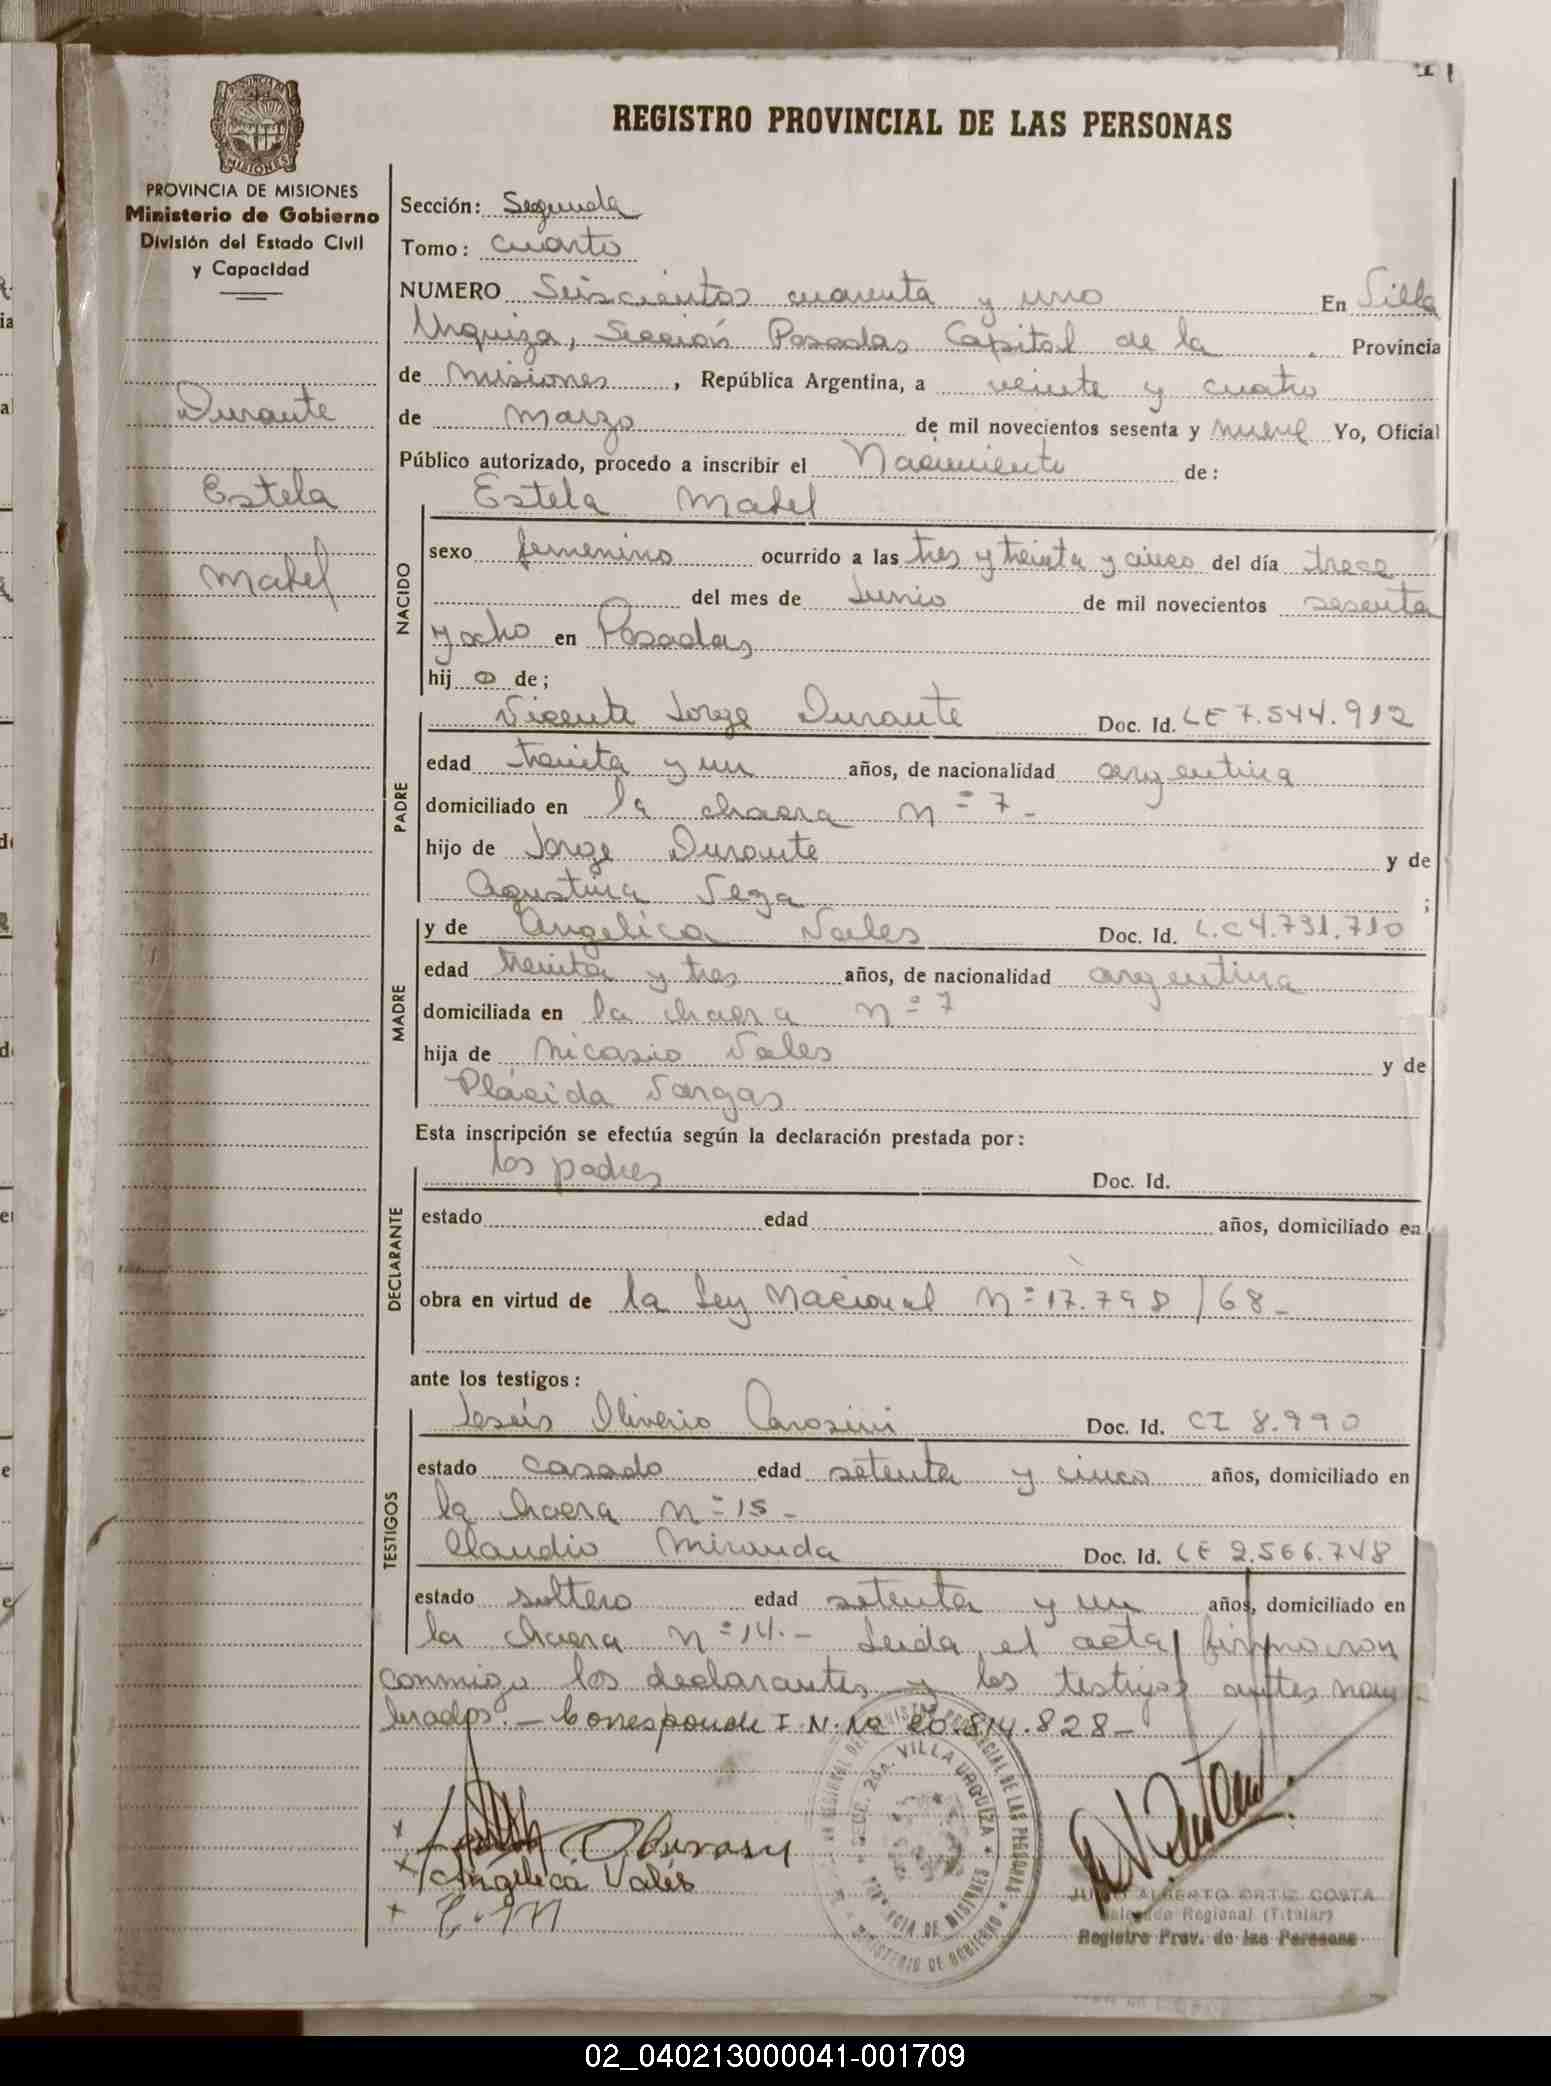 REGISTRO PROVINCIAL DE LAS PERSONAS
PROVINCIA DE MISIONES
Ministerio de Gobierno
División del Estado Civil
y Capacidad
Durante
Estela
Mabel
Sección: Segunda
Tomo: Cuarto
NUMERO Seiscientos cuarenta y uno En Villa
Urquiza, Sección Posadas Capital de la Provincia
de Misiones, República Argentina, a veinte y cuatro
de Marzo de mil novecientos sesenta y nueve Yo, Oficial
Público autorizado, procedo a inscribir el Nacimiento de:
Estela Mabel
NACIDO
sexo femenino ocurrido a las tres y treinta y cinco del día trece
del mes de Junio de mil novecientos sesenta
y ocho en Posadas
hij o de;
Vicente Jorge Durante Doc. Id. LE 7.544.912
PADRE
edad treinta y un años, de nacionalidad argentina
domiciliado en la chacra n=7-
hijo de Jorge Durante y de
Agustina Vega ;
y de Angelica Vales Doc. Id. L.C 4.731.710
MADRE
edad treinta y tres años, de nacionalidad argentina
domiciliada en la chacra n=7
hija de Nicasio Vales y de
Plácida Vargas
Esta inscripción se efectúa según la declaración prestada por:
los padres Doc. Id.
DECLARANTE
estado edad años, domiciliado en
obra en virtud de la Ley Nacional N=17.798/68-
ante los testigos:
Jesús Oliverio Carosini Doc. Id. CI 8.990
TESTIGOS
estado casado edad setenta y cinco años, domiciliado en
la chacra n=15-
Claudio Miranda Doc. Id. LE 2.566.748
estado soltero edad setenta y un años, domiciliado en
la chacra n=14.- Leida el acta, firmaron
conmigo los declarantes y los testigos antes nom-
brados.- Corresponde I.N. No 20.814.828-
Angelica Valés
C. M
SECC. 2da. VILLA URQUIZA
PROVINCIA DE MISIONES
MINISTERIO DE GOBIERNO
JULIO ALBERTO ORTIZ COSTA
Delegado Regional (Titular)
Registro Prov. de las Personas
02_040213000041-001709